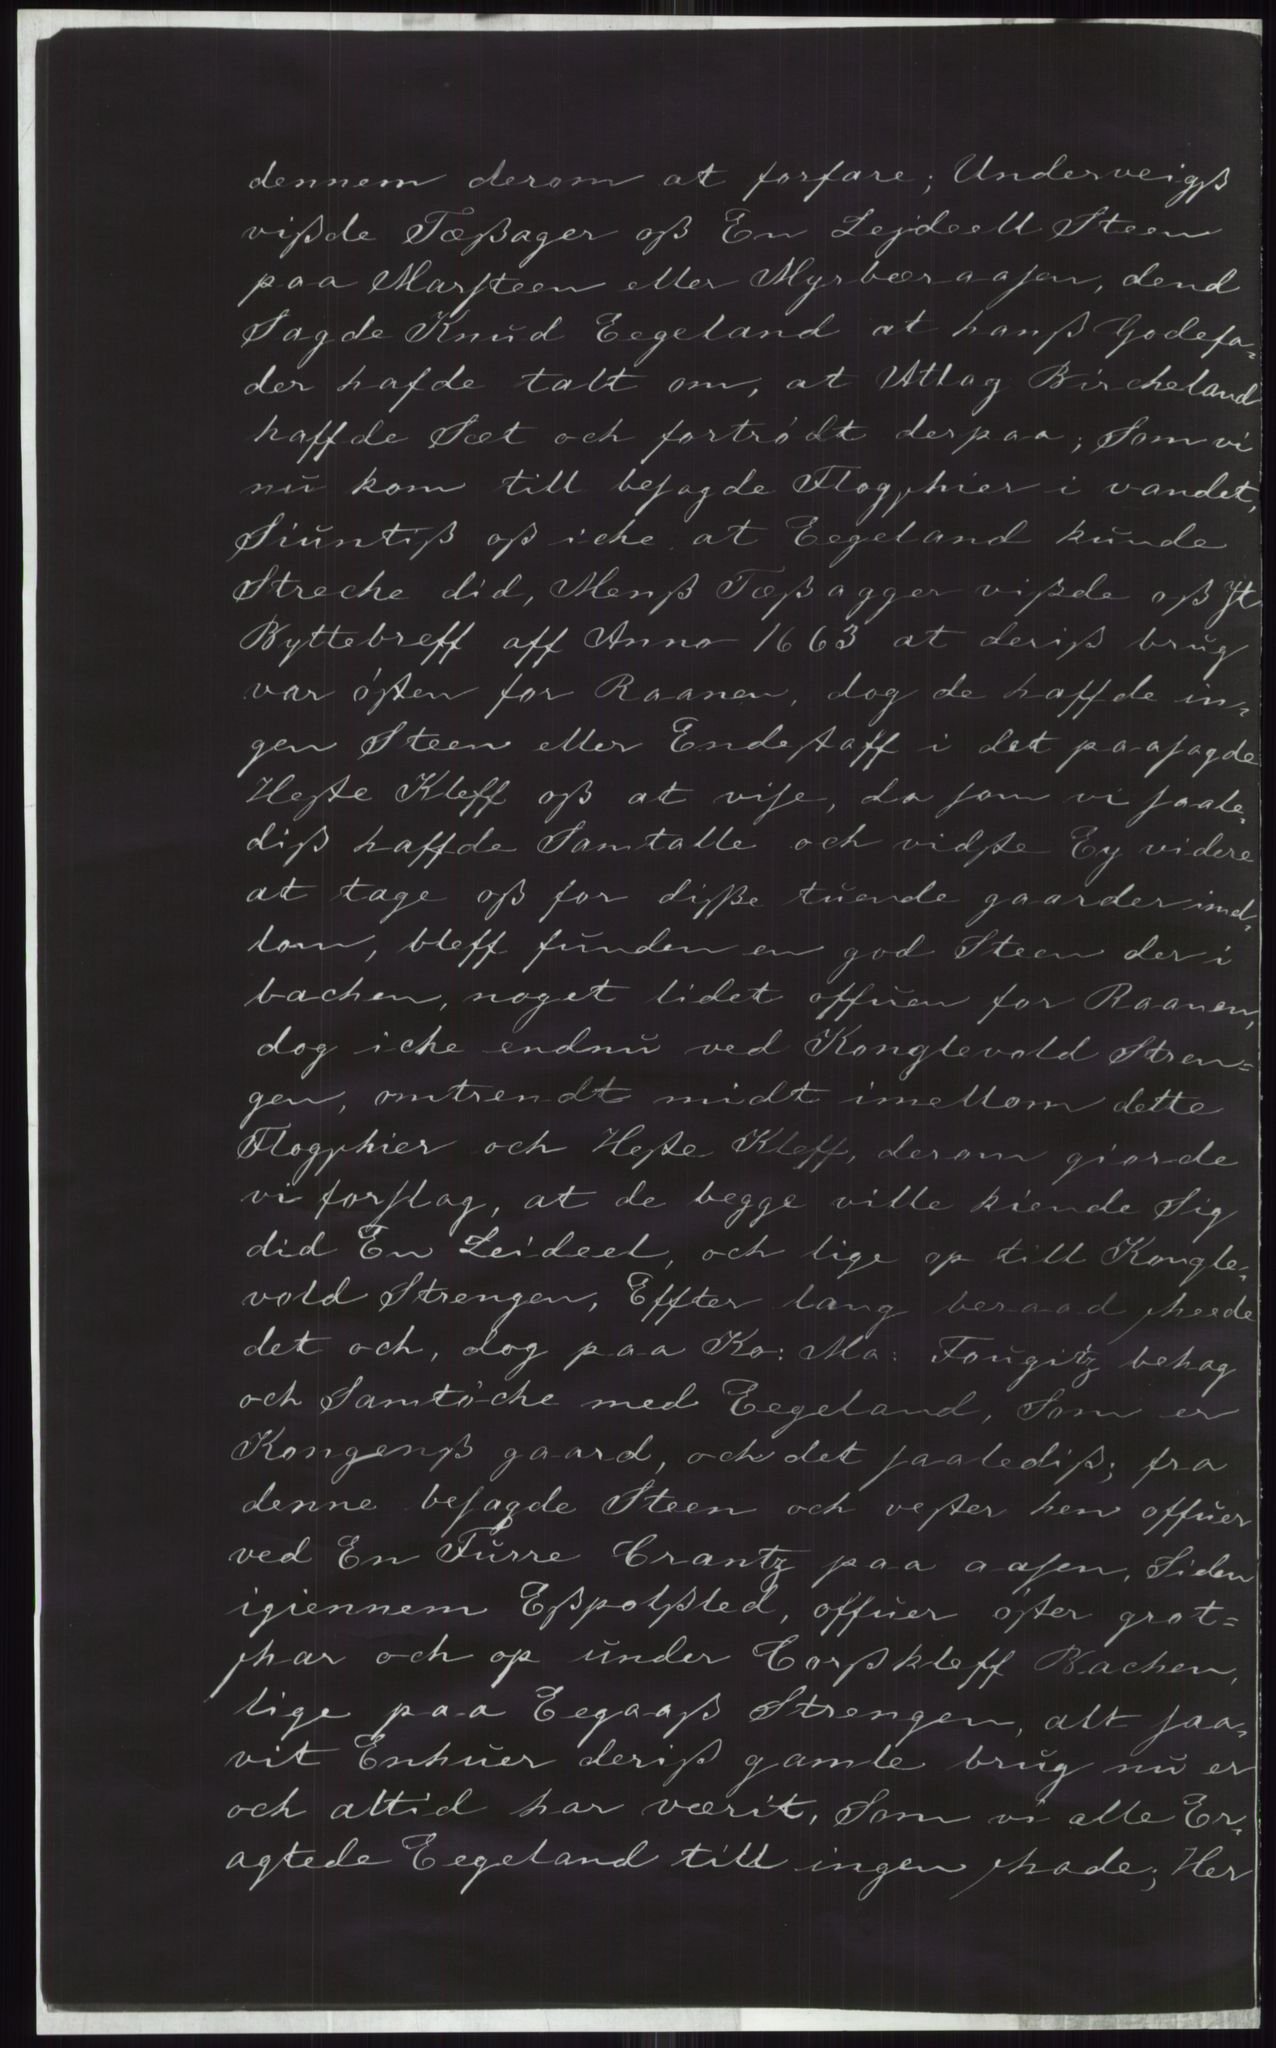 dennem derom at forfare; Underveigß
vißde Tæßager oß En Lejdeell Steen
paa Marsteen eller Myrbæraasen, dend
Sagde Knŭd Eegeland at hanß Godefa-
der hafde talt om, at Atlag Bircheland
haffde Sæt och fortrødt derpaa; Som vi
nŭ kom till besagde Flogphier i vandet,
Siŭntiß oß iche at Eegeland kŭnde
Streche did, Menß Tæßagger vißde oß Jt
Byttebreff aff Anno 1663 at deriß brŭg
var østen for Raanen, dog de haffde in-
gen Steen eller Endestaff i det paasagde
Heste Kleff oß at vise, da som vi saale-
diß haffde Samtalle och vidste Ey videre
at tage oß for disse tŭende gaarder imel-
lom, bleff fŭnden en god Steen der i
bachen, noget lidet offŭen for Raanen,
dog iche endnŭ ved Konglevold Stren-
gen, omtrendt midt imellom dette
Flogphier och Heste Kleff, derom giorde
vi forslag, at de begge ville kiende Sig
did En Leideel, och lige op till Kongle-
vold Strengen, Effter lang beraad skeede
det och, dog paa Ko: Ma: Foŭgitz behag
och Samtøche med Eegeland, Som er
Kongenß gaard, och det saalediß; fra
denne besagde Steen och vester hen offŭer
ved En Fŭrre Crantz paa aasen, Siden
igiennem Eßpolßled, offŭer øster grot-
skar och op ŭnder Corßkleff Bachen,
lige paa Eegaaß Strengen, alt saa-
vit Enhŭer deriß gamle brŭg nŭ er
och altid har værit, Som vi alle Er-
agtede Eegeland till ingen skade; Her